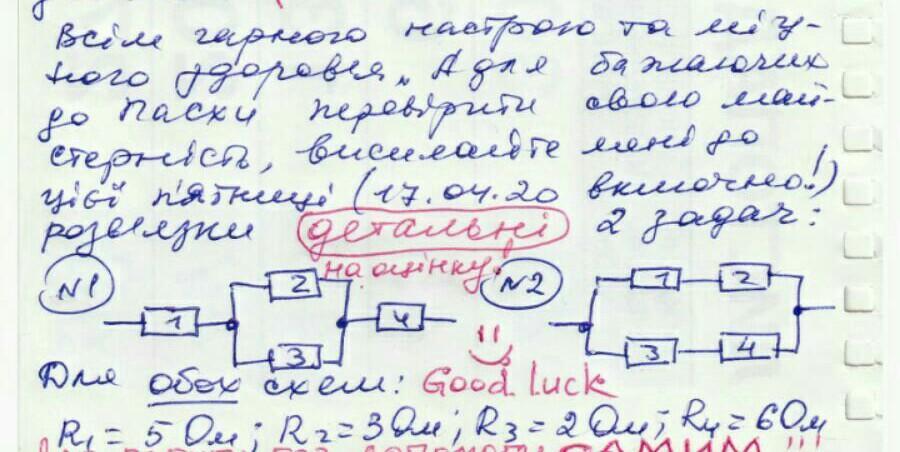 Всім гарного настрою та міц-
ного здоровья. А для бажаючих
до Пасхи перевірити свою май-
стерність, висилайте мені до
цієї п'ятниці (17.04.20 включно!)
розвязки детальні 2 задач:
на оцінку!
N1
N2
1
2
3
4
1
2
3
4
Для обох схем: Good luck
R1 = 5 Ом; R2 = 3 Ом; R3 = 2 Ом; R4 = 6 Ом
САМИМ!!!